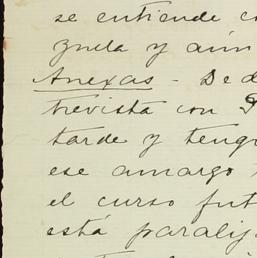 se entiende co
zuela y aún
Anexas - De d
trevista con
tarde y teng
ese amargo
el curso fut
está parali